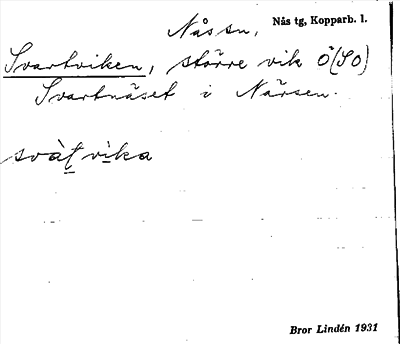 Nås sn, Nås tg, Kopparb. l.
Svartviken, större vik Ö (SO)
Svartnäset i Närsen.
svàt̲ vi̲ka
Bror Lindén 1931